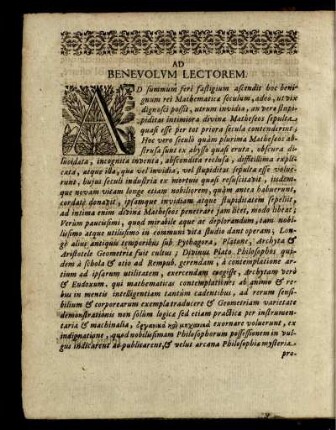 AD
BENEVOLVM LECTOREM.
AD summum ferè fastigium ascendit hoc beni-
gnum rei Mathematicæ seculum, adeo, ut vix
dignosci possit, utrum invidia, an verò stupi-
ditas intimiora divinæ Matheseos sepulta
quasi esse per tot priora secula contenderint;
Hoc verò seculo quàm plurima Matheseos ab-
strusa sunt ex abysso quasi eruta, obscura di-
lucidata, incognita inventa, abscondita reclusa, difficillima expli-
cata, atque ista, quæ vel invidia, vel stupiditas sepulta esse volue-
runt, hujus seculi industria ex mortuis quasi resuscitavit, iisdem-
que novam vitam longe etiam nobiliorem, quàm antea habuerunt,
cordatè donavit, ipsamque invidiam atque stupiditatem sepelivit,
ad intima enim divinæ Matheseos penetrare jam licet, modo libeat;
Verùm paucissimi, quod mirabile æque ac deplorandum, tam nobi-
lissimo atque utilissimo in communi vita studio dant operam; Lon-
gè alius antiquis temporibus sub Pythagora, Platone, Archyta &
Aristotele Geometriæ fuit cultus; Divinus Plato Philosophos quos-
dem à schola & otio ad Rempub. gerendam, à contemplatione ar-
tium ad ipsarum utilitatem, exercendam coegisse, Archytam verò
& Eudoxum, qui mathematicas contemplationes ab animo & re-
bus in mentis intelligentiam tantùm cadentibus, ad rerum sensi-
bilium & corporearum exempla traducere & Geometriam varietate
demonstrationis non solùm logica sed etiam practica per instrumen-
taria & machinalia, ὀργανικὰ καὶ μηχανικὰ exornare voluerunt, ex
indignatione, quod nobilissimam Philosophorum possessionem in vul-
gus indicarent ac publicarent, & velut arcana Philosophiæ mysteria
pro-